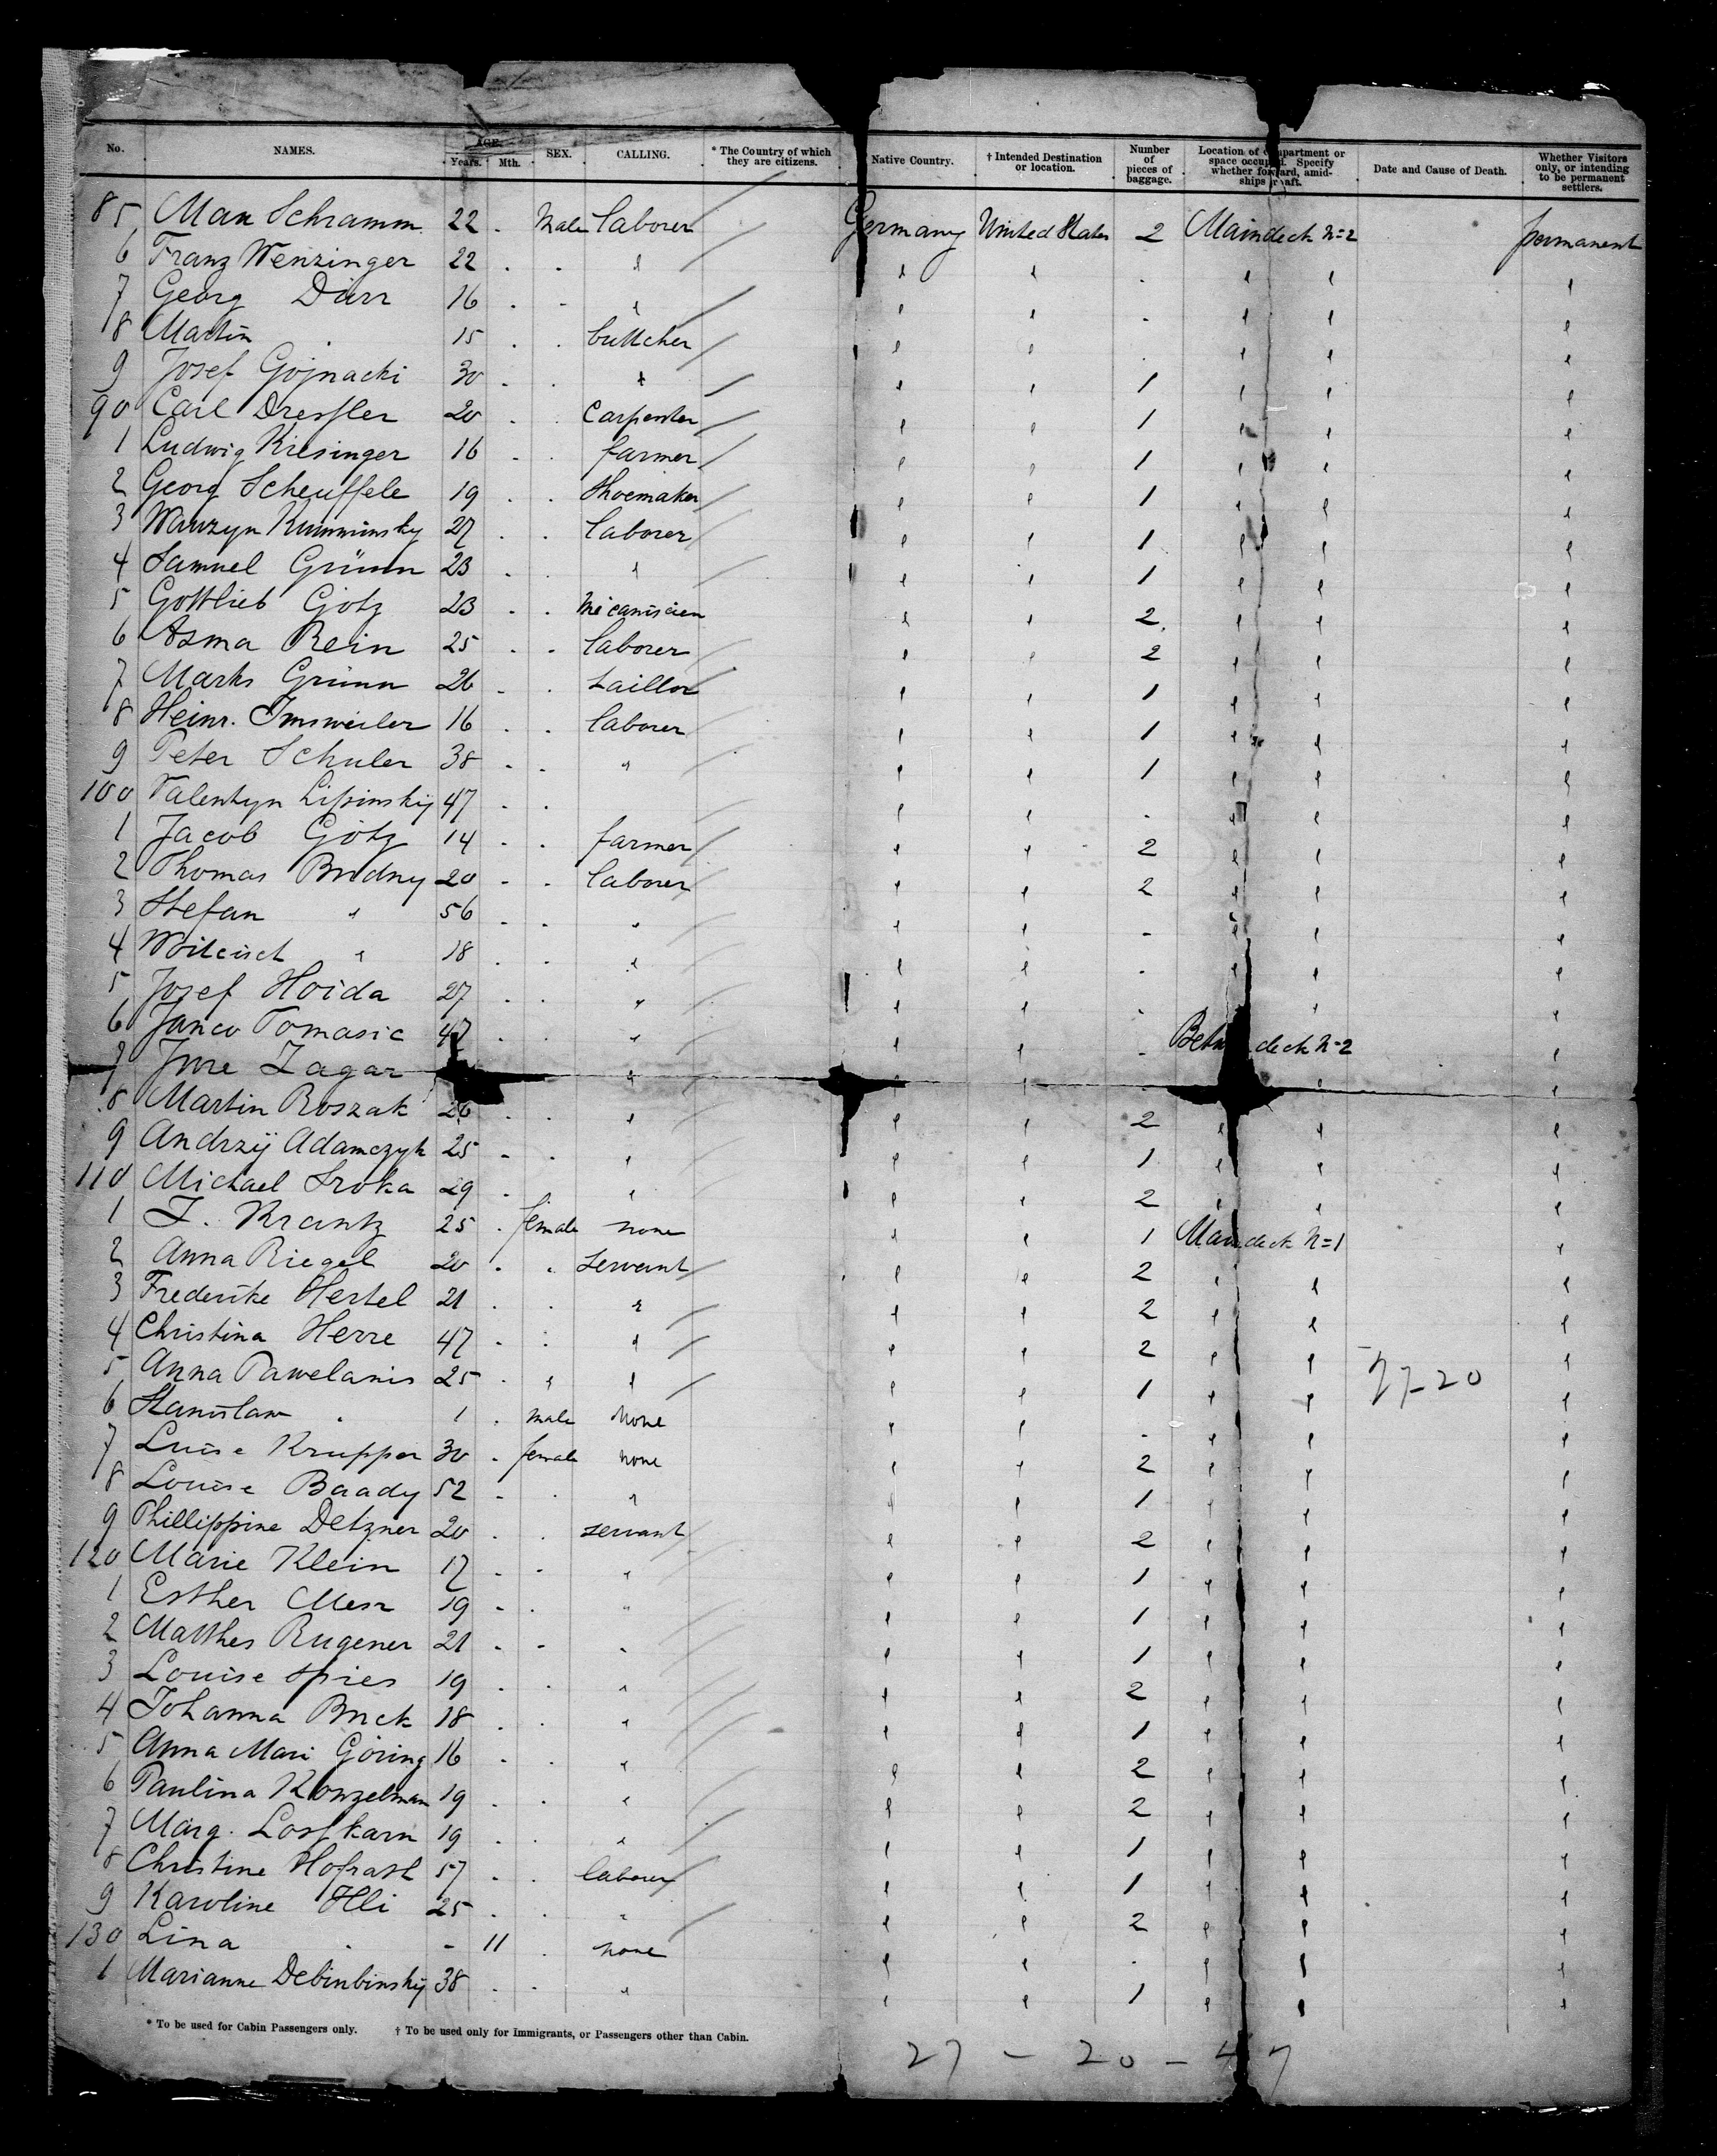 No. NAMES. AGE. Years. Mth. SEX. CALLING. * The Country of which they are citizens. Native Country. † Intended Destination or location. Number of pieces of baggage. Location of compartment or space occupied. Specify whether forward, amidships or aft. Date and Cause of Death. Whether Visitors only, or intending to be permanent settlers.
85 Max Schramm 22 . Male laborer Germany United States 2 Maindeck N=2 permanent
6 Franz Wenzinger 22 . . " " " . " " "
7 Georg Dürr 16 . . " " " . " " "
8 Martin . 15 . . buttcher " " . " " "
9 Josef Gojnacki 30 . . " " " 1 " " "
90 Carl Dressler 20 . . Carpenter " " 1 " " "
1 Ludwig Kiesinger 16 . . farmer " " 1 " " "
2 Georg Scheuffele 19 . . Shoemaker " " 1 " " "
3 Wawzyn 27 . . laborer " " 1 " " "
4 Samuel Grünn 23 . . " " " 1 " " "
5 Gottlieb Götz 23 . . mecanicien " " 2 " " "
6 Asma Rein 25 . . laborer " " 2 " " "
7 Marks Grünn 26 . . taillor " " 1 " " "
8 Heinr. Imsweiler 16 . . laborer " " 1 " " "
9 Peter Schuler 38 . . " " " 1 " " "
100 Valentyn Lipinskij 47 . . " " . " " "
1 Jacob Götz 14 . . farmer " " 2 " " "
2 Thomas Budny 20 . . laborer " " 2 " " "
3 Stefan " 56 . . " " " . " " "
4 Woiciech " 18 . . " " " . " " "
5 Josef Hoida 27 . . " " " . " "
6 Janco Tomasic 47 . . " " " . Betw deck N=2 "
7 Jure Zagar " " " . " "
8 Martin Roszak 26 . . " " " 2 " " "
9 Andrzij Adamczyk 25 . . " " " 1 " " "
110 Michael Sroka 29 . " " " 2 " " "
1 I. Krantz 25 . female none " " 1 Maindeck N=1 "
2 Anna Riegel 20 . . Servant " " 2 " " "
3 Frederike Hertel 21 . . " " " 2 " " "
4 Christina Herre 47 . . " " " 2 " " "
5 Anna Pawelanis 25 . " " " " 1 " " 27-20 "
6 Stanislaw . 1 . male none " " . " " "
7 Luise Krupper 30 . female none " " 2 " " "
8 Louise Baady 52 . . " " " 1 " " "
9 Phillippine Detzner 20 . . servant " " 2 " " "
120 Marie Klein 17 . . " " " 1 " " "
1 Esther 19 . . " " " 1 " " "
2 Matthes Rugener 21 . . " " " 1 " " "
3 Louise Spies 19 . . " " " 2 " " "
4 Johanna Buck 18 . . " " " 1 " " "
5 Anna Mari Göring 16 . . " " " 2 " " "
6 Paulina Konzelman 19 . . " " " 2 " " "
7 Marg. Losskarn 19 . . " " " 1 " " "
8 Christine 57 . . laborer " " 1 " " "
9 Karoline Illi 25 . . " " " 2 " " "
130 Lina . - 11 . none " " . " " "
1 Marianne Debinbinskij 38 . . " " " 1 " " "
* To be used for Cabin Passengers only. † To be used only for Immigrants, or Passengers other than Cabin.
27 - 20 - 47